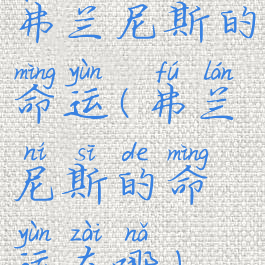 弗兰尼斯的
mìng yùn fú lán
命运(弗兰
ní sī de mìng
尼斯的命
yùn zài nǎ
运在哪)